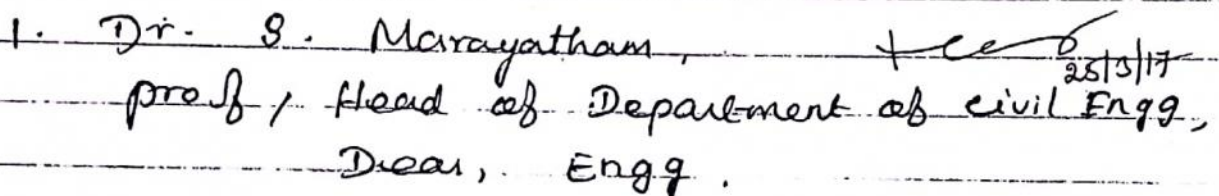 1. Dr. S. Marayatham,
25/3/17
prof, Head of Department of civil Engg,
Dean, Engg.